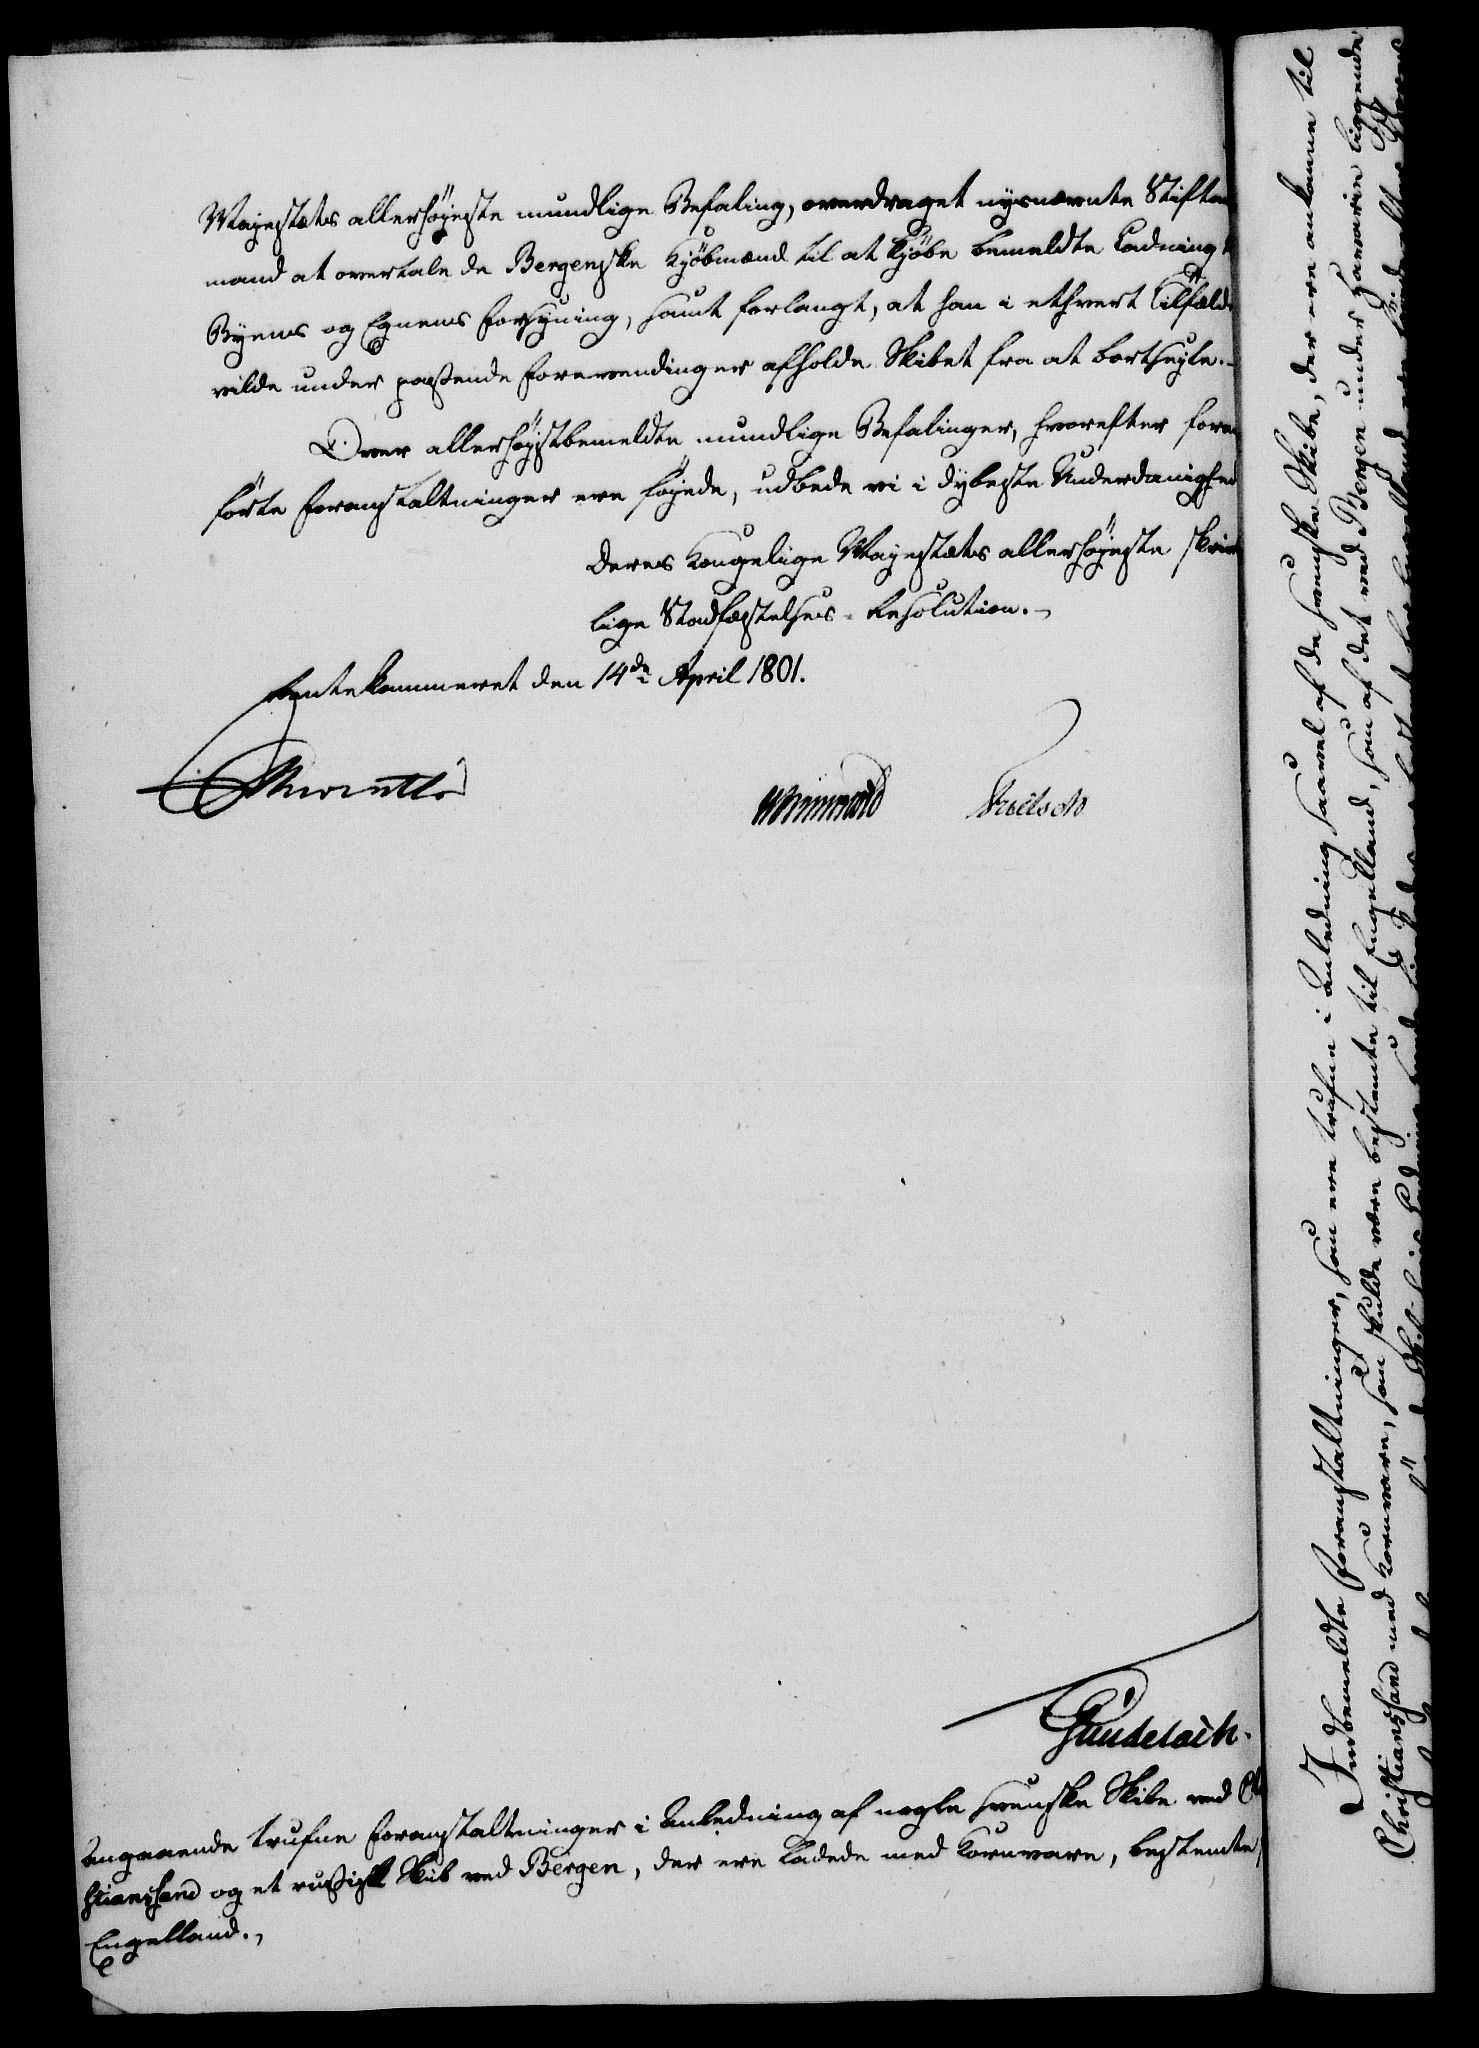 Mayestæts allerhøyeste mundlige Befaling, overdraget nysnævnte Stiftam
mand at overtale de Bergenske Kjöbmænd til at kjöbe bemeldte Ladning t
Byens og Egnens Forsyning, samt forlangt, at han i ethvert Tilfælde
vilde under passende Forevendinger afholde Skibet fra at bortseyle.-
Over allerhøystbemeldte mundlige Befalinger, hvorefter foran
förte Foranstaltninger ere föyede, udbede vi i dybeste Underdanighed
Deres Kongelige Mayestæts allerhøyeste skrivt
lige Stadfæstelses-Resolution.-
Rentekammeret den 14de April 1801.
Angaaende trufne Foranstaltninger i Anledning af nogle svenske Skibe ved Chri
stiansand og et russisk Skib ved Bergen, der ere ladede med Kornvare, bestemte
Engelland.
Indbemeldte Foranstaltninger, som ere trufne i Anledning saavel af de svenske Skibe, der ere ankomne til
Christianssand med Kornvare, som skulde være bestemte til Engelland, som af det ved Bergen under Havarie liggende